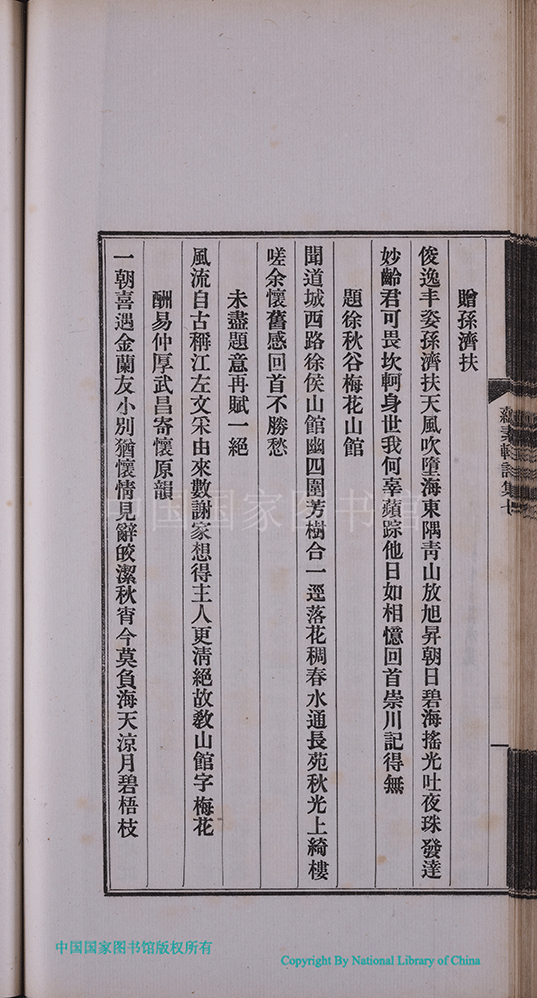 贈孫濟扶
俊逸丰姿孫濟扶天風吹墮海東隅青山放旭昇朝日碧海搖光吐夜珠發達
妙齡君可畏坎軻身世我何辜蘋踪他日如相憶回首崇川記得無
題徐秋谷梅花山館
聞道城西路徐侯山館幽四圍芳樹合一逕落花稠春水通長苑秋光上綺樓
嗟余懷舊感回首不勝愁
未盡題意再賦一絕
風流自古稱江左文采由來數謝家想得主人更清絕故教山館字梅花
酬易仲厚武昌寄懷原韻
一朝喜遇金蘭友小別猶懷情見辭皎潔秋宵今莫負海天涼月碧梧枝
素軒詩集七
中国国家图书馆
中国国家图书馆版权所有
Copyright By National Library of China